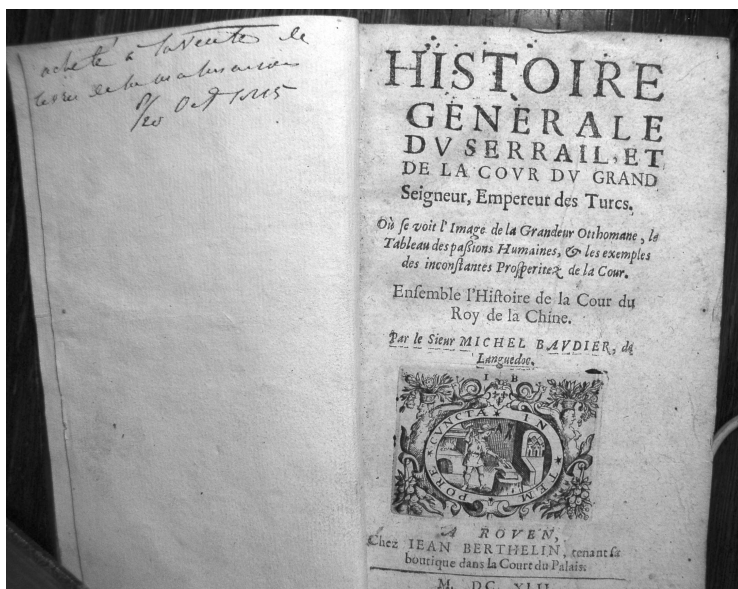 acheté à la Vente de
HISTOIRE
GENERALE
DV SERRAIL, ET
DE LA COVR DV GRAND
Seigneur, Empereur des Turcs.
Où ſe voit l'Image de la Grandeur Otthomane, le
Tableau des paßions Humaines, & les exemples
des inconſtantes Proſperitez de la Cour.
Enſemble l'Hiſtoire de la Cour du
Roy de la Chine.
Par le Sieur MICHEL BAVDIER, de
Languedoc.
I B
CVNCTA IN TEMPORE
A ROVEN,
Chez IEAN BERTHELIN, tenant ſa
boutique dans la Court du Palais.
M. DC. XLII